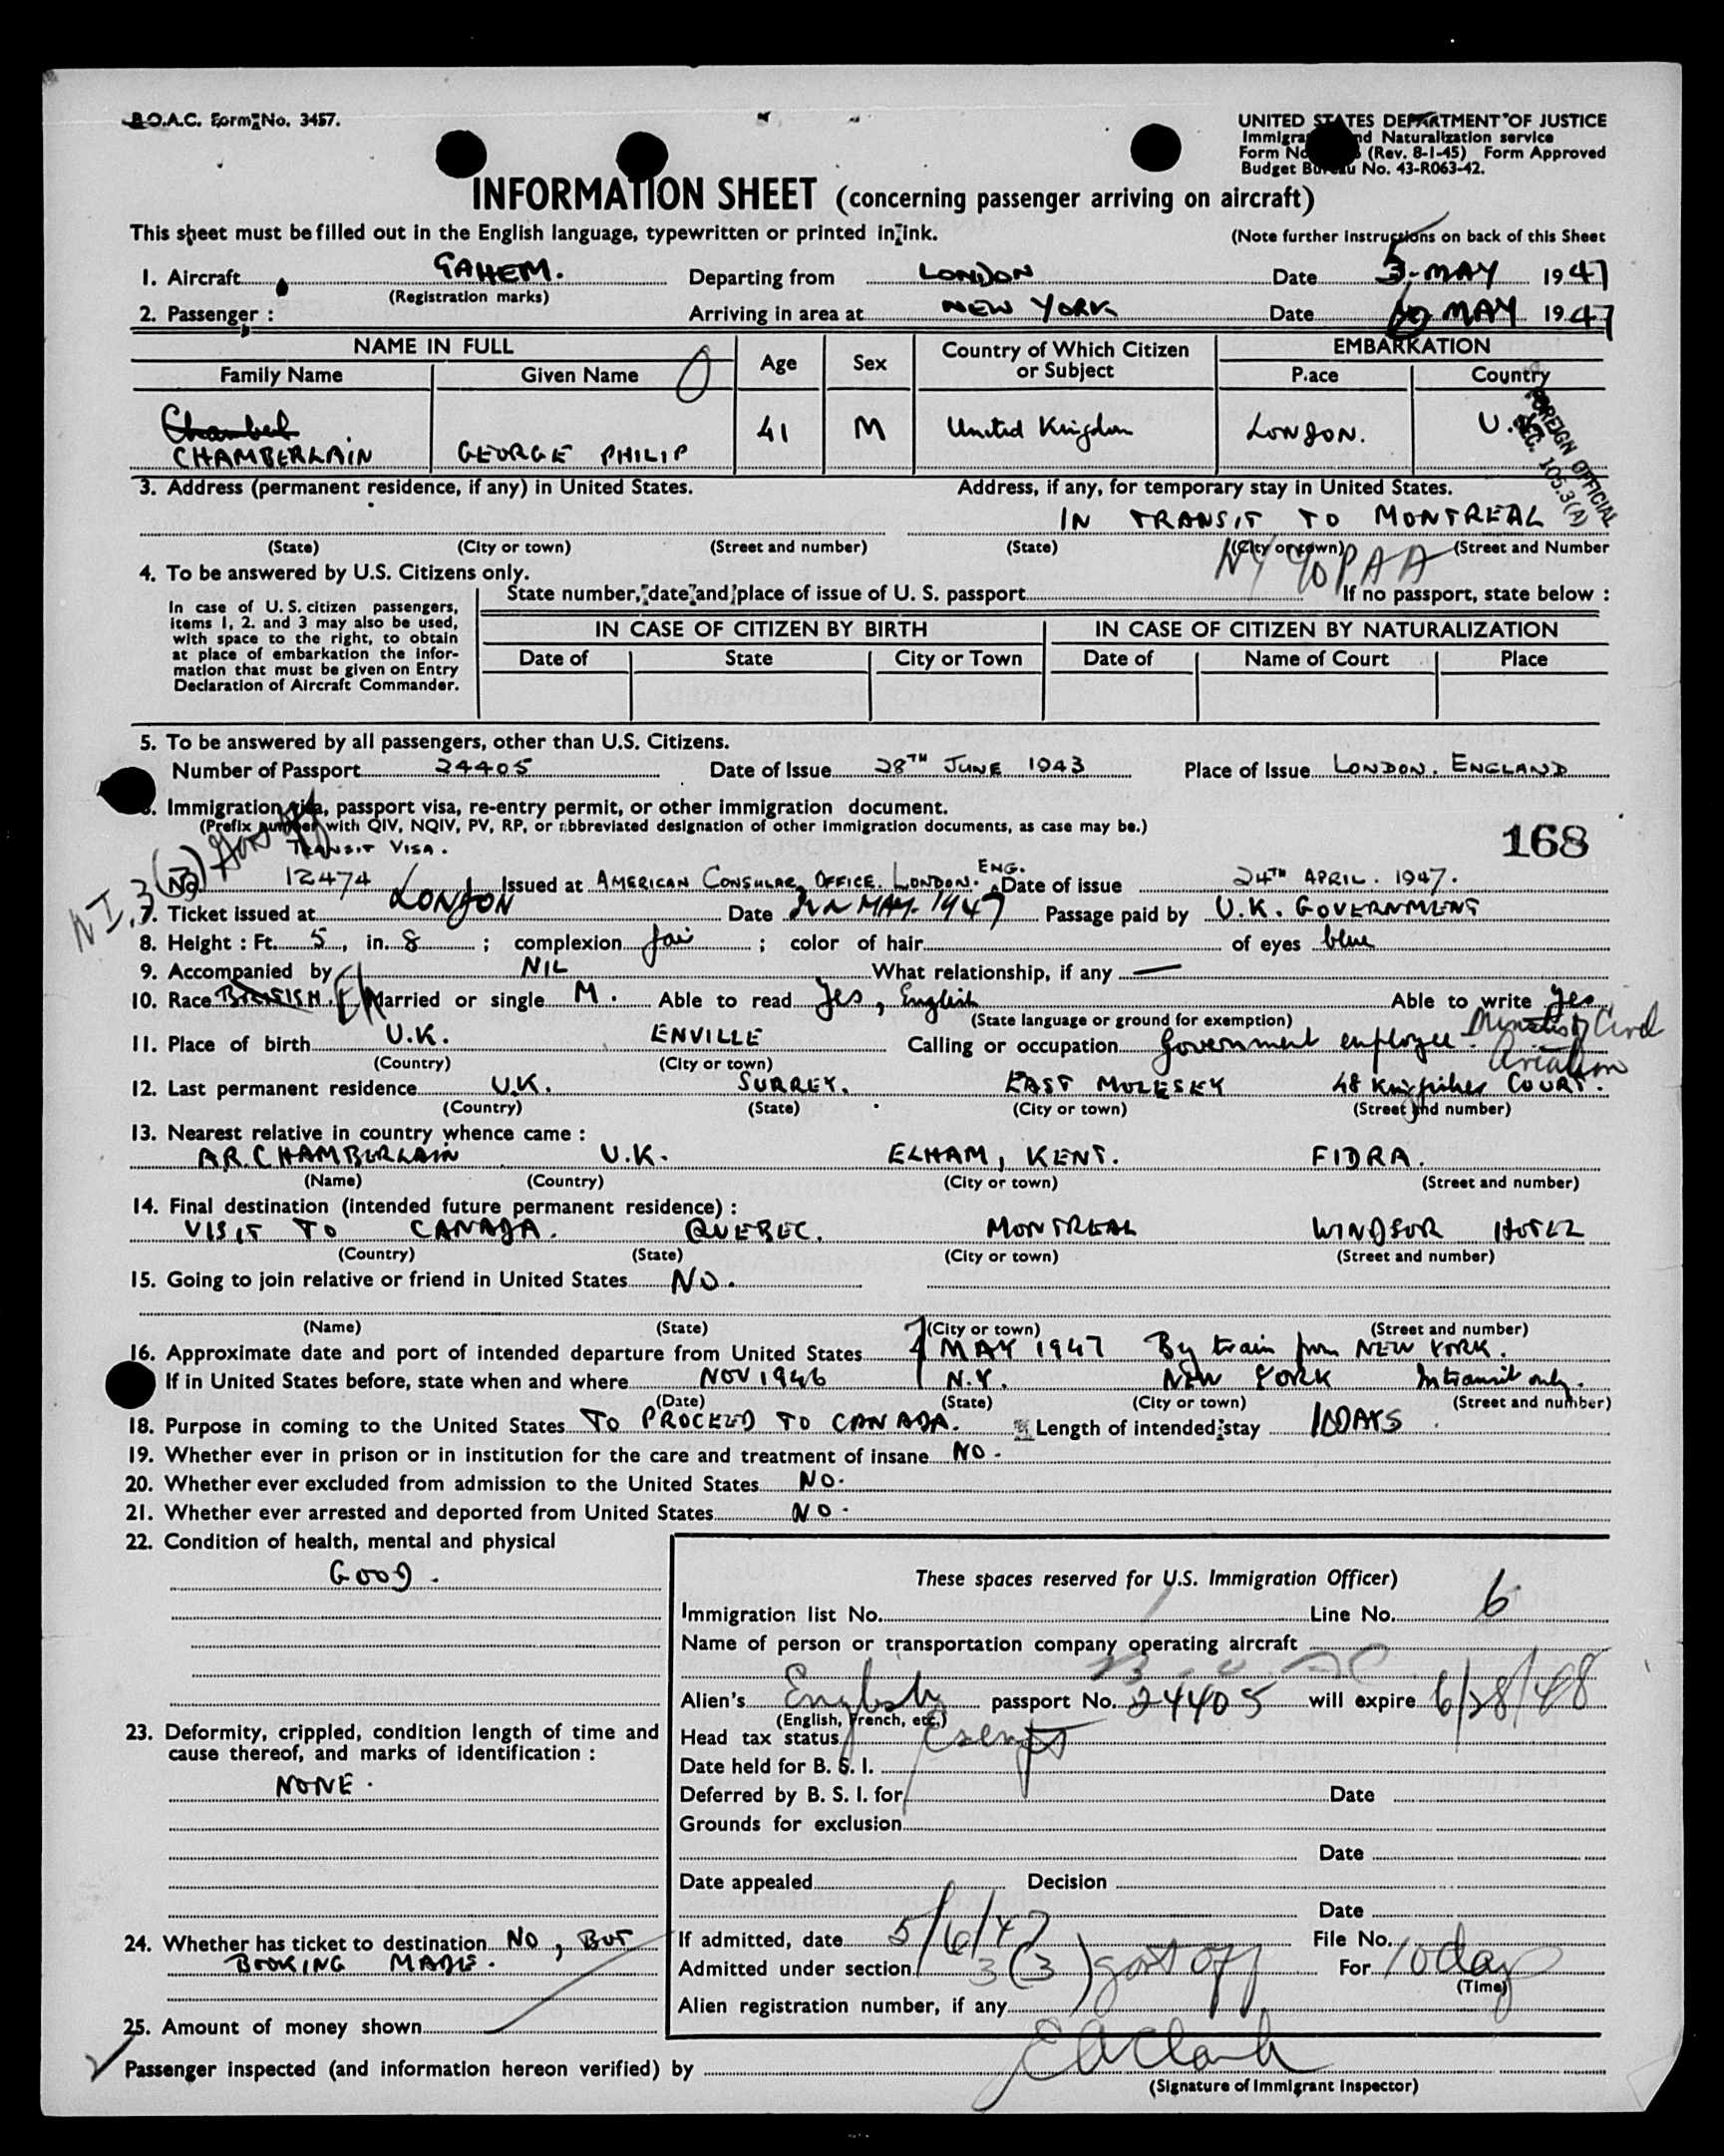 B.O.A.C. Form No. 3457.
UNITED STATES DEPARTMENT OF JUSTICE
Immigra nd Naturalization service
Form No (Rev. 8-1-45) Form Approved
Budget Bureau No. 43-R063-42.
INFORMATION SHEET (concerning passenger arriving on aircraft)
This sheet must be filled out in the English language, typewritten or printed in ink.
(Note further instructions on back of this Sheet
1. Aircraft GAHEM. Departing from LONDON Date 5 MAY 1947
(Registration marks)
2. Passenger : Arriving in area at NEW YORK Date 6 MAY 1947
NAME IN FULL Age Sex Country of Which Citizen or Subject EMBARKATION
Family Name Given Name Place Country
Chambel
CHAMBERLAIN GEORGE PHILIP 41 M United Kingdom LONDON. U.K.
FOREIGN OFFICIAL
SEC. 105.3(A)
3. Address (permanent residence, if any) in United States. Address, if any, for temporary stay in United States.
IN TRANSIT TO MONTREAL
(State) (City or town) (Street and number) (State) (City or town) (Street and Number
NY c/o PAA
4. To be answered by U.S. Citizens only.
State number, date and place of issue of U. S. passport If no passport, state below :
In case of U. S. citizen passengers,
items 1, 2. and 3 may also be used,
with space to the right, to obtain
at place of embarkation the infor-
mation that must be given on Entry
Declaration of Aircraft Commander.
IN CASE OF CITIZEN BY BIRTH IN CASE OF CITIZEN BY NATURALIZATION
Date of State City or Town Date of Name of Court Place
5. To be answered by all passengers, other than U.S. Citizens.
Number of Passport 24405 Date of Issue 28TH JUNE 1943 Place of Issue LONDON. ENGLAND
6. Immigration visa, passport visa, re-entry permit, or other immigration document.
(Prefix number with QIV, NQIV, PV, RP, or abbreviated designation of other immigration documents, as case may be.)
168
TRANSIT VISA.
No. 12474 Issued at AMERICAN CONSULAR OFFICE. LONDON. ENG. Date of issue 24TH APRIL. 1947.
7. Ticket issued at LONDON Date 2nd MAY 1947 Passage paid by U.K. GOVERNMENT
8. Height : Ft. 5, in. 8 ; complexion fair ; color of hair of eyes blue
9. Accompanied by NIL What relationship, if any —
10. Race BRITISH. Married or single M. Able to read yes, English Able to write yes
(State language or ground for exemption)
11. Place of birth U.K. ENVILLE Calling or occupation Government employee. Ministry Civil Aviation
(Country) (City or town)
12. Last permanent residence U.K. SURREY. EAST MOLESEY 48 Kingfisher COURT.
(Country) (State) (City or town) (Street and number)
13. Nearest relative in country whence came :
A.R. CHAMBERLAIN U.K. ELHAM, KENT. FIDRA.
(Name) (Country) (City or town) (Street and number)
14. Final destination (intended future permanent residence) :
VISIT TO CANADA. QUEBEC. MONTREAL WINDSOR HOTEL
(Country) (State) (City or town) (Street and number)
15. Going to join relative or friend in United States NO.
(Name) (State) (City or town) (Street and number)
16. Approximate date and port of intended departure from United States 7 MAY 1947 By train from NEW YORK.
If in United States before, state when and where NOV 1946 N.Y. NEW YORK In transit only.
(Date) (State) (City or town) (Street and number)
18. Purpose in coming to the United States TO PROCEED TO CANADA. Length of intended stay 10 DAYS
19. Whether ever in prison or in institution for the care and treatment of insane NO.
20. Whether ever excluded from admission to the United States NO.
21. Whether ever arrested and deported from United States NO.
22. Condition of health, mental and physical
GOOD.
These spaces reserved for U.S. Immigration Officer)
Immigration list No. Line No. 6
Name of person or transportation company operating aircraft
B.O.A.C
Alien's English passport No. 24405 will expire 6/28/48
(English, French, etc.)
23. Deformity, crippled, condition length of time and
cause thereof, and marks of identification :
NONE.
Head tax status Exempt
Date held for B. S. I.
Deferred by B. S. I. for Date
Grounds for exclusion
Date
Date appealed Decision
Date
24. Whether has ticket to destination NO, BUT
BOOKING MADE.
If admitted, date 5/6/47 File No.
Admitted under section 3(3) govt off For 10 days
(Time)
Alien registration number, if any
25. Amount of money shown
Passenger inspected (and information hereon verified) by E A Clark
(Signature of Immigrant Inspector)